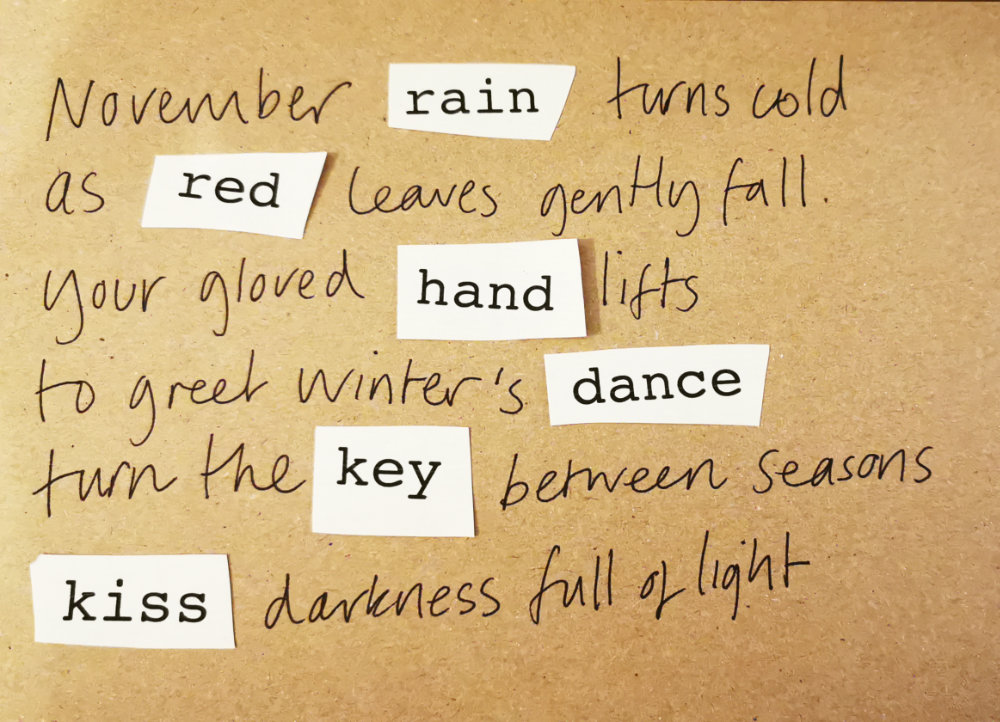 November rain turns cold
as red leaves gently fall.
Your gloved hand lifts
to greet winter's dance
turn the key between seasons
kiss darkness full of light